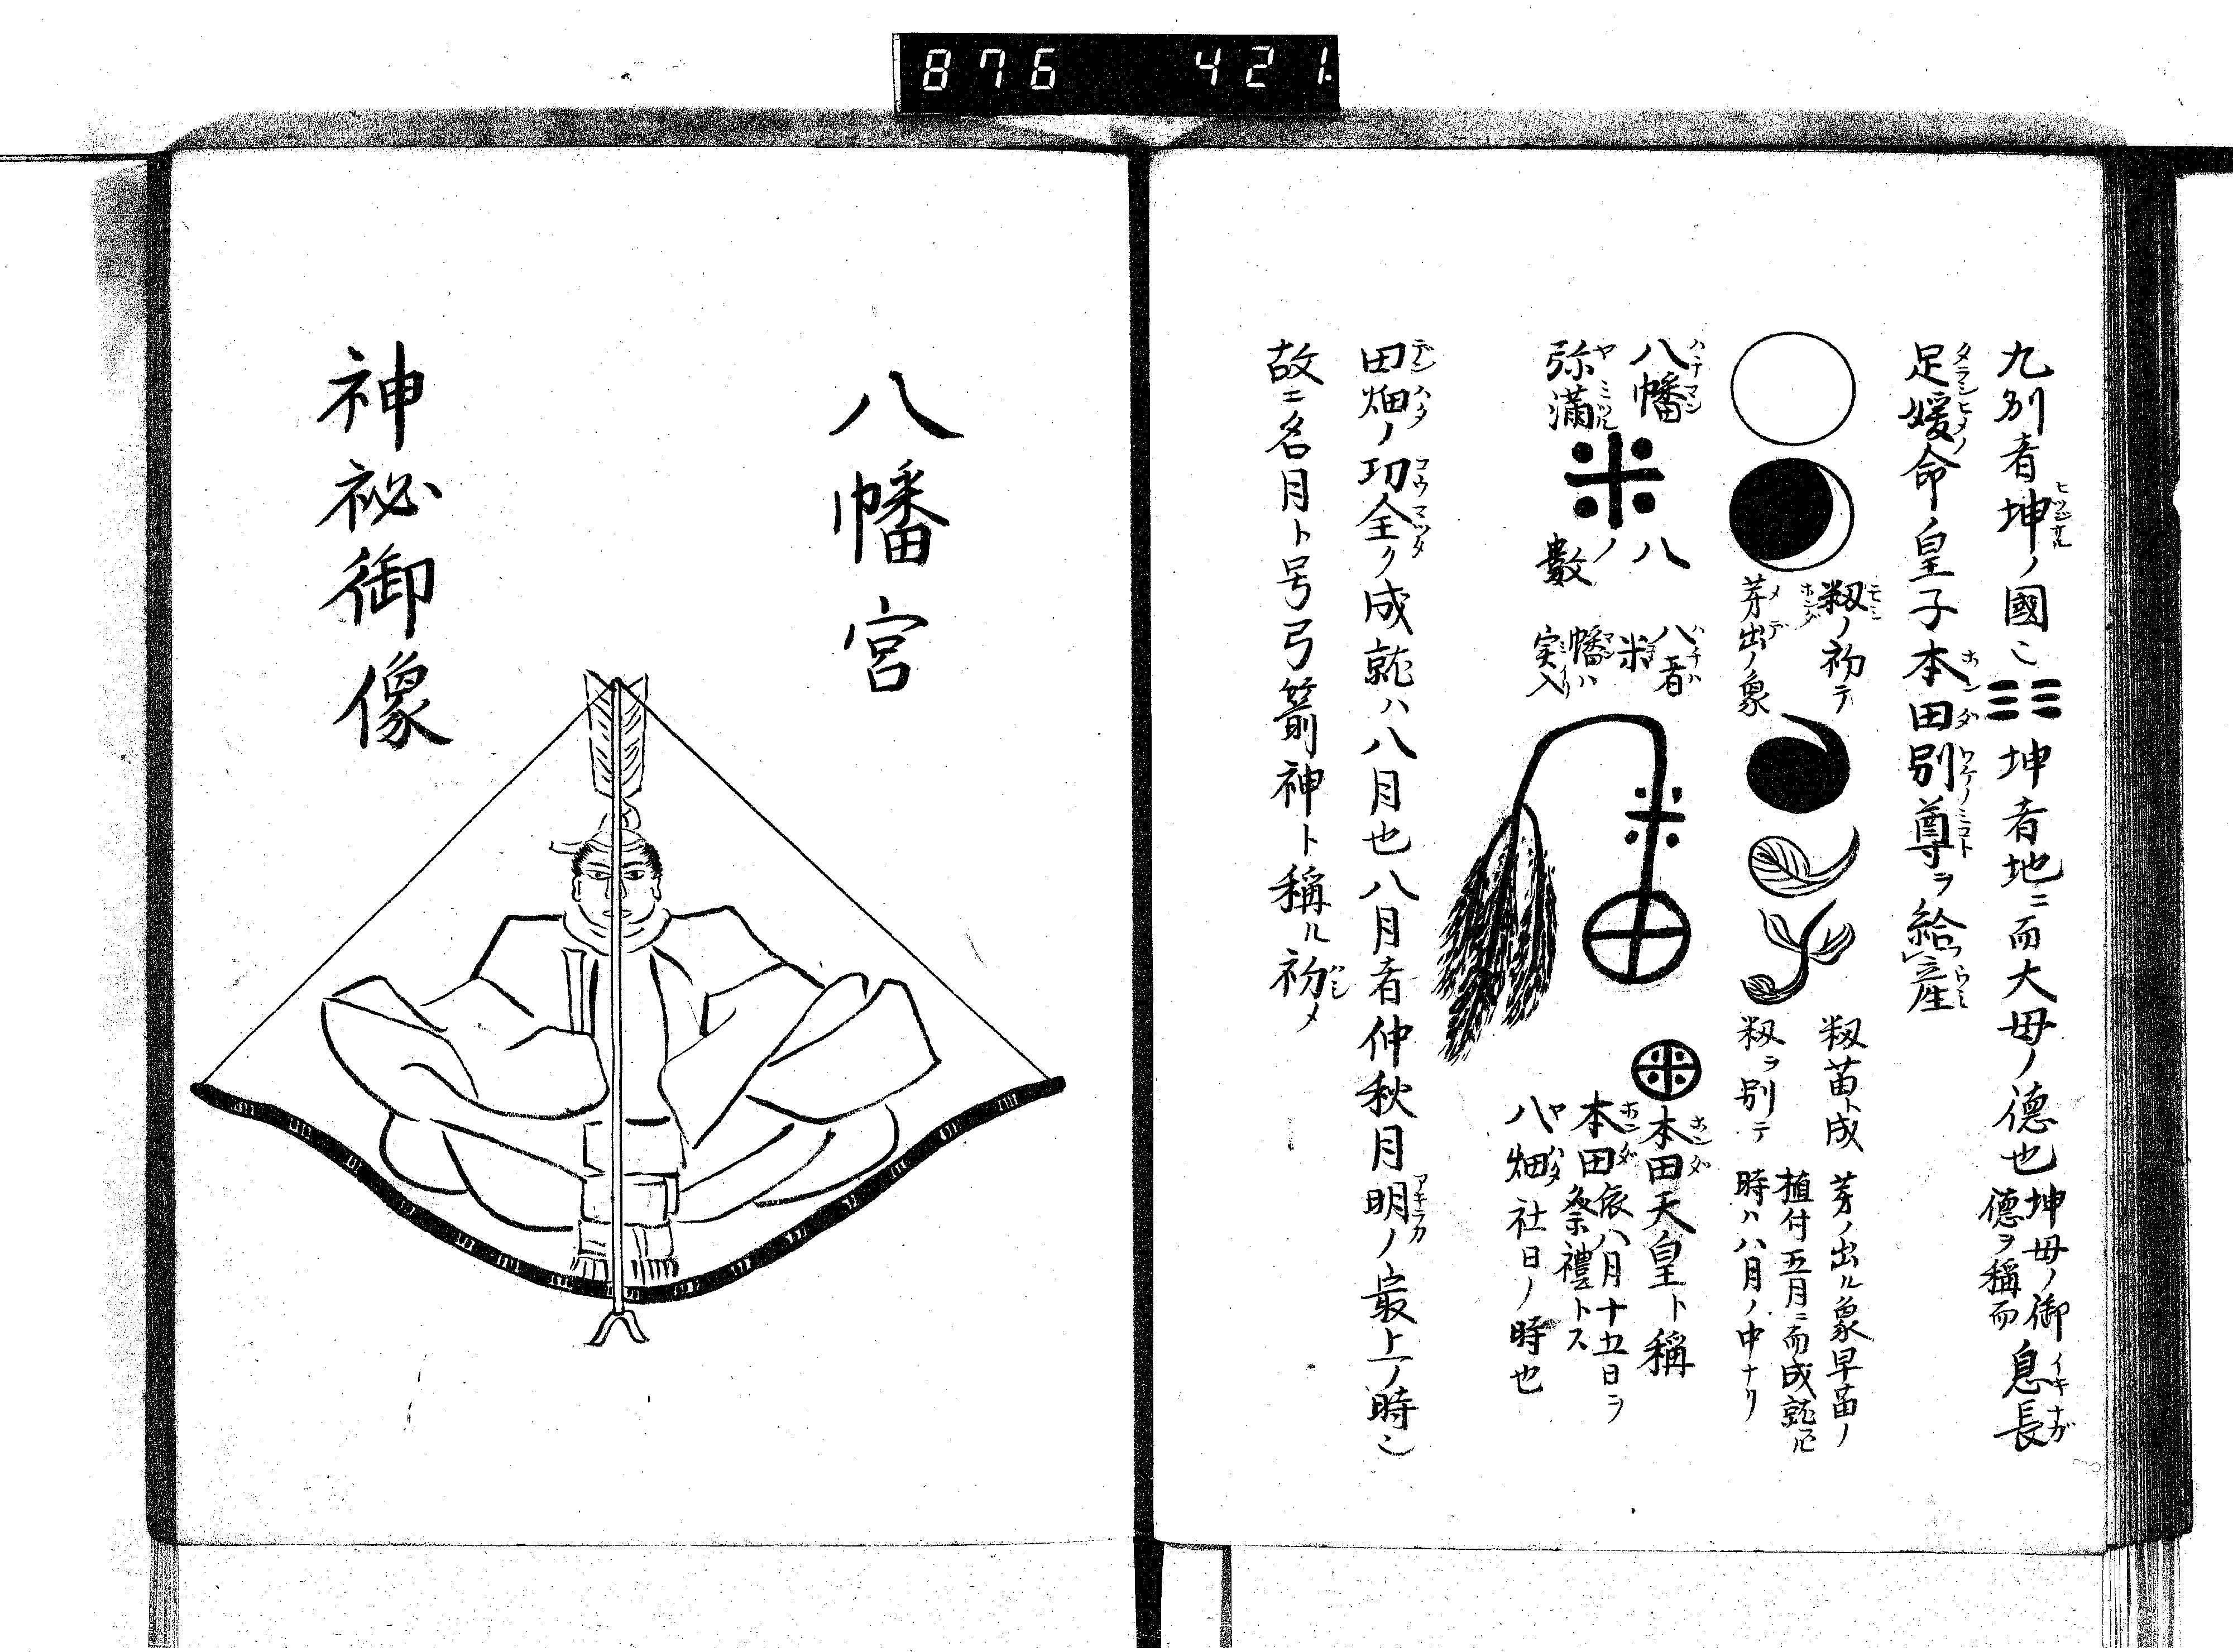 876 421.
九別者坤ノ國ニ☷坤者地ニ而大母ノ德也
坤母ノ御
德ヲ稱而
息長
足媛命ノ皇子本田別尊ヲ給產
籾ノ初テ
芽出ノ象
籾苗ト成
籾ヲ別テ
芽ノ出ル象早苗ノ
植付五月ニ而成就
時ハ八月ノ中ナリ
八幡
弥滿
米
八
ノ
數
八者
米
幡ハ
実入
米
本田天皇ト稱
本田
依八月十五日ヲ
祭禮トス
八畑社日ノ時也
田畑ノ功全ク成就ハ八月也八月者仲秋月明ノ最上ノ時
故ニ名月ト号弓箭神ト稱ル初メ
八幡宮
神祕御像